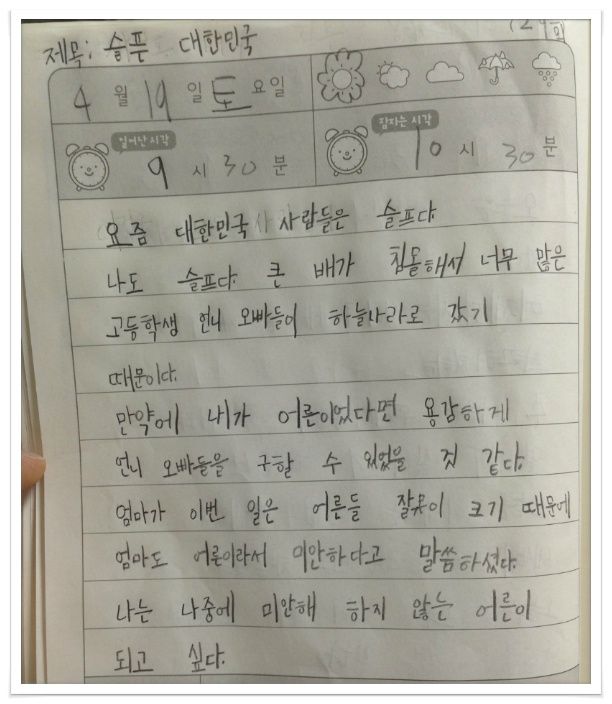 제목: 슬픈 대한민국
4 월 19 일 토 요일
일어난 시각
9 시 30 분
잠자는 시각
10 시 30 분
요즘 대한민국 사람들은 슬프다.
나도 슬프다. 큰 배가 침몰해서 너무 많은
고등학생 언니 오빠들이 하늘나라로 갔기
때문이다.
만약에 내가 어른이었다면 용감하게
언니 오빠들을 구할 수 있었을 것 같다.
엄마가 이번 일은 어른들 잘못이 크기 때문에
엄마도 어른이라서 미안하다고 말씀하셨다.
나는 나중에 미안해 하지 않는 어른이
되고 싶다.